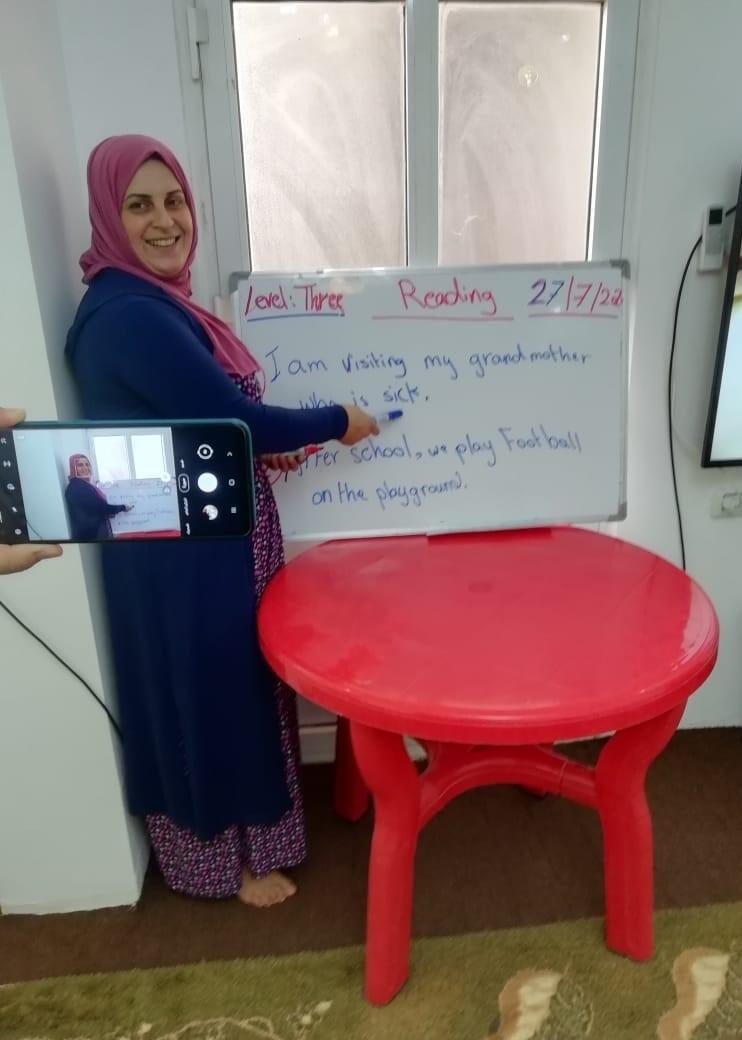 Level: Three Reading 27/7/22
I am visiting my grandmother
who is sick.
After school, we play Football
on the playground.